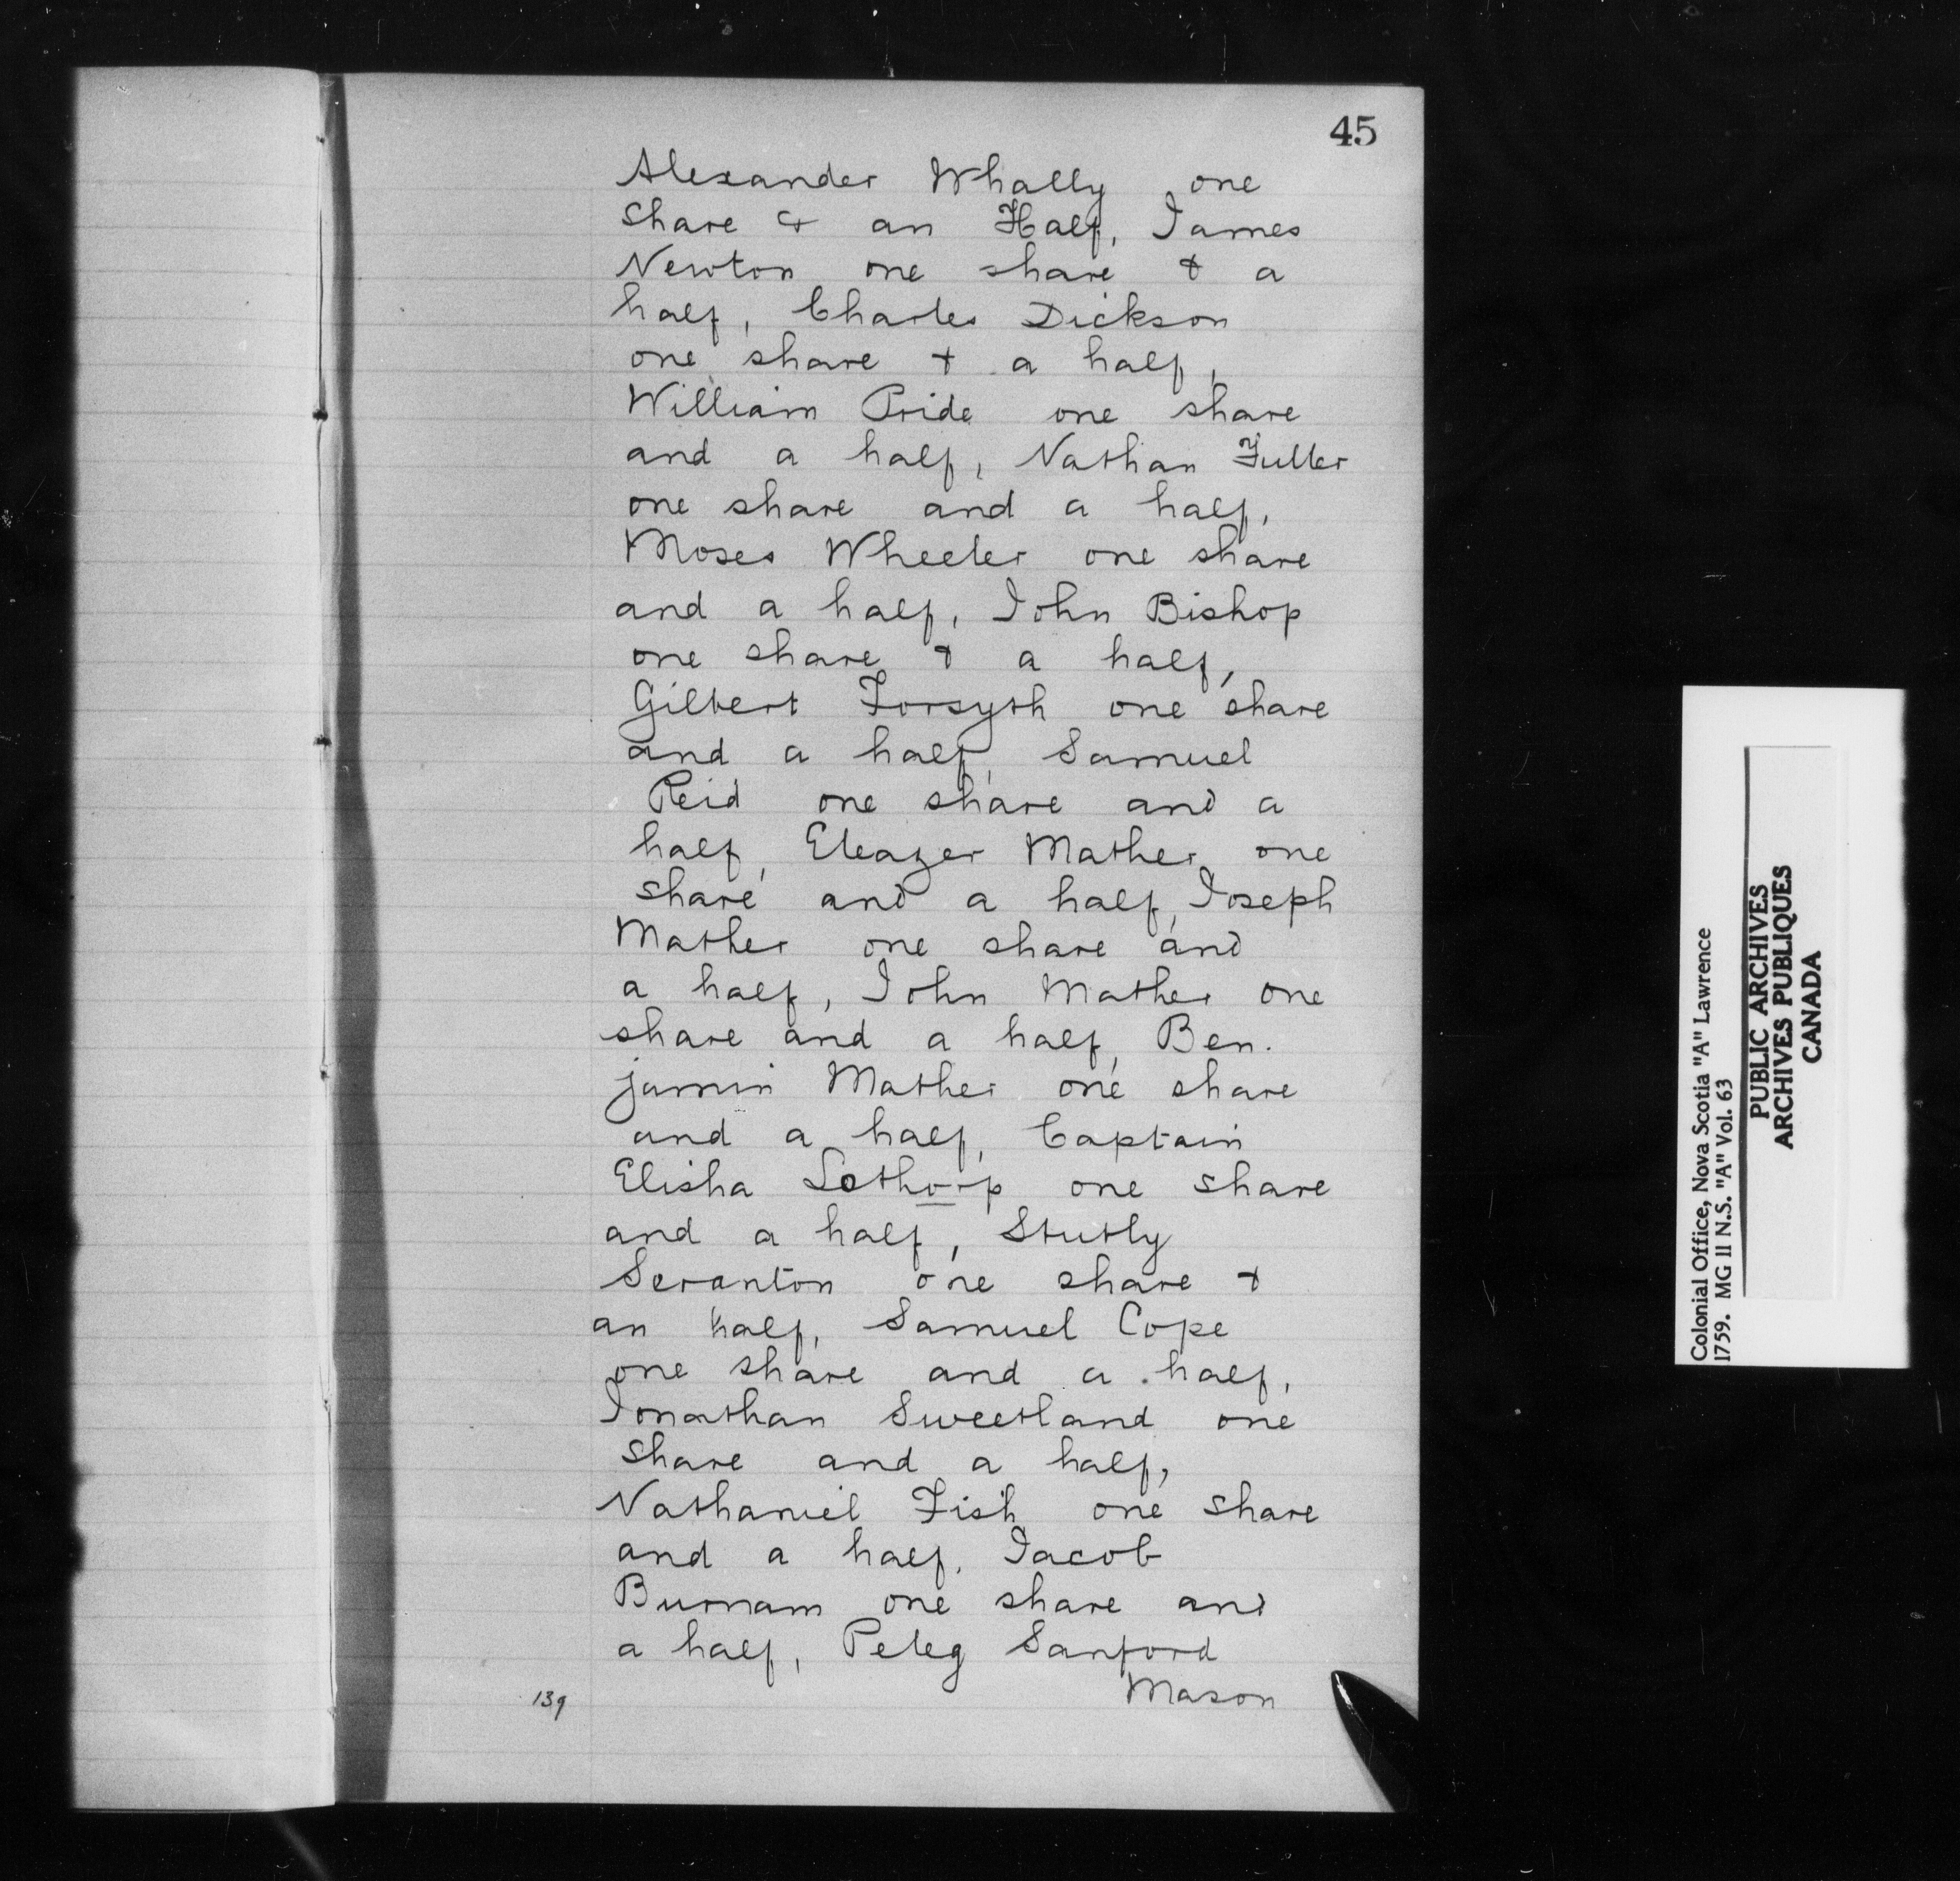 45
Alexander Whally one
share & an Half, James
Newton one share & a
half, Charles Dickson
one share & a half,
William Pride one share
and a half, Nathan Fuller
one share and a half,
Moses Wheeler one share
and a half, John Bishop
one share & a half,
Gilbert Forsyth one share
and a half, Samuel
Reid one share and a
half, Eleazer Mather one
share and a half, Joseph
Mather one share and
a half, John Mather one
share and a half, Ben-
jamin Mather one share
and a half, Captain
Elisha Lothorp one share
and a half, Stutly
Scranton one share &
an half, Samuel Cope
one share and a half,
Jonathan Sweetland one
share and a half,
Nathaniel Fish one share
and a half, Jacob
Burnam one share and
a half, Peleg Sanford
Mason
139
Colonial Office, Nova Scotia "A" Lawrence
1759. MG 11 N.S. "A" Vol. 63
PUBLIC ARCHIVES
ARCHIVES PUBLIQUES
CANADA